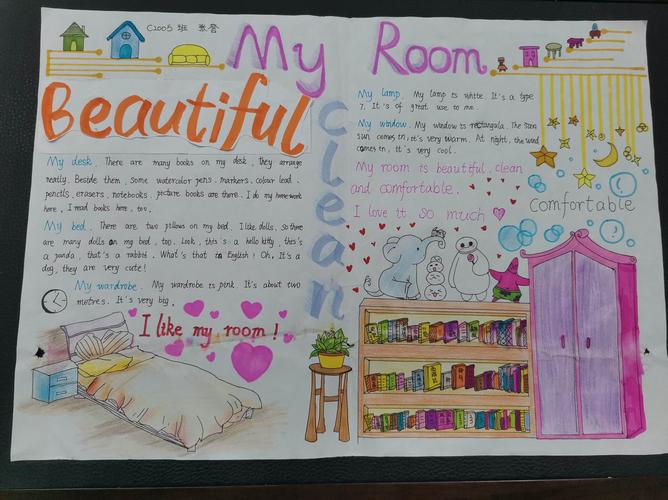 C2005 班
My Room
Beautiful
clean
My desk. There are many books on my desk, they arrange
neatly. Beside them, Some watercolor pens, markers, colour lead
pencils, erasers, notebooks, picture books are there. I do my homework
here, I read books here, too.
My bed. There are two pillows on my bed. I like dolls, so there
are many dolls on my bed, too. Look, this is a hello kitty, this's
a panda, that's a rabbit. What's that in English? Oh, It's a
dog, they are very cute!
My wardrobe. My wardrobe is pink. It's about two
metres. It's very big.
I like my room!
My lamp. My lamp is white. It's a type
7. It's of great use to me.
My window. My window is rectangala. The
sun comes in, it's very warm. At night, the wind
comes in, It's very cool.
My room is beautiful, clean
and comfortable.
I love it so much
Comfortable